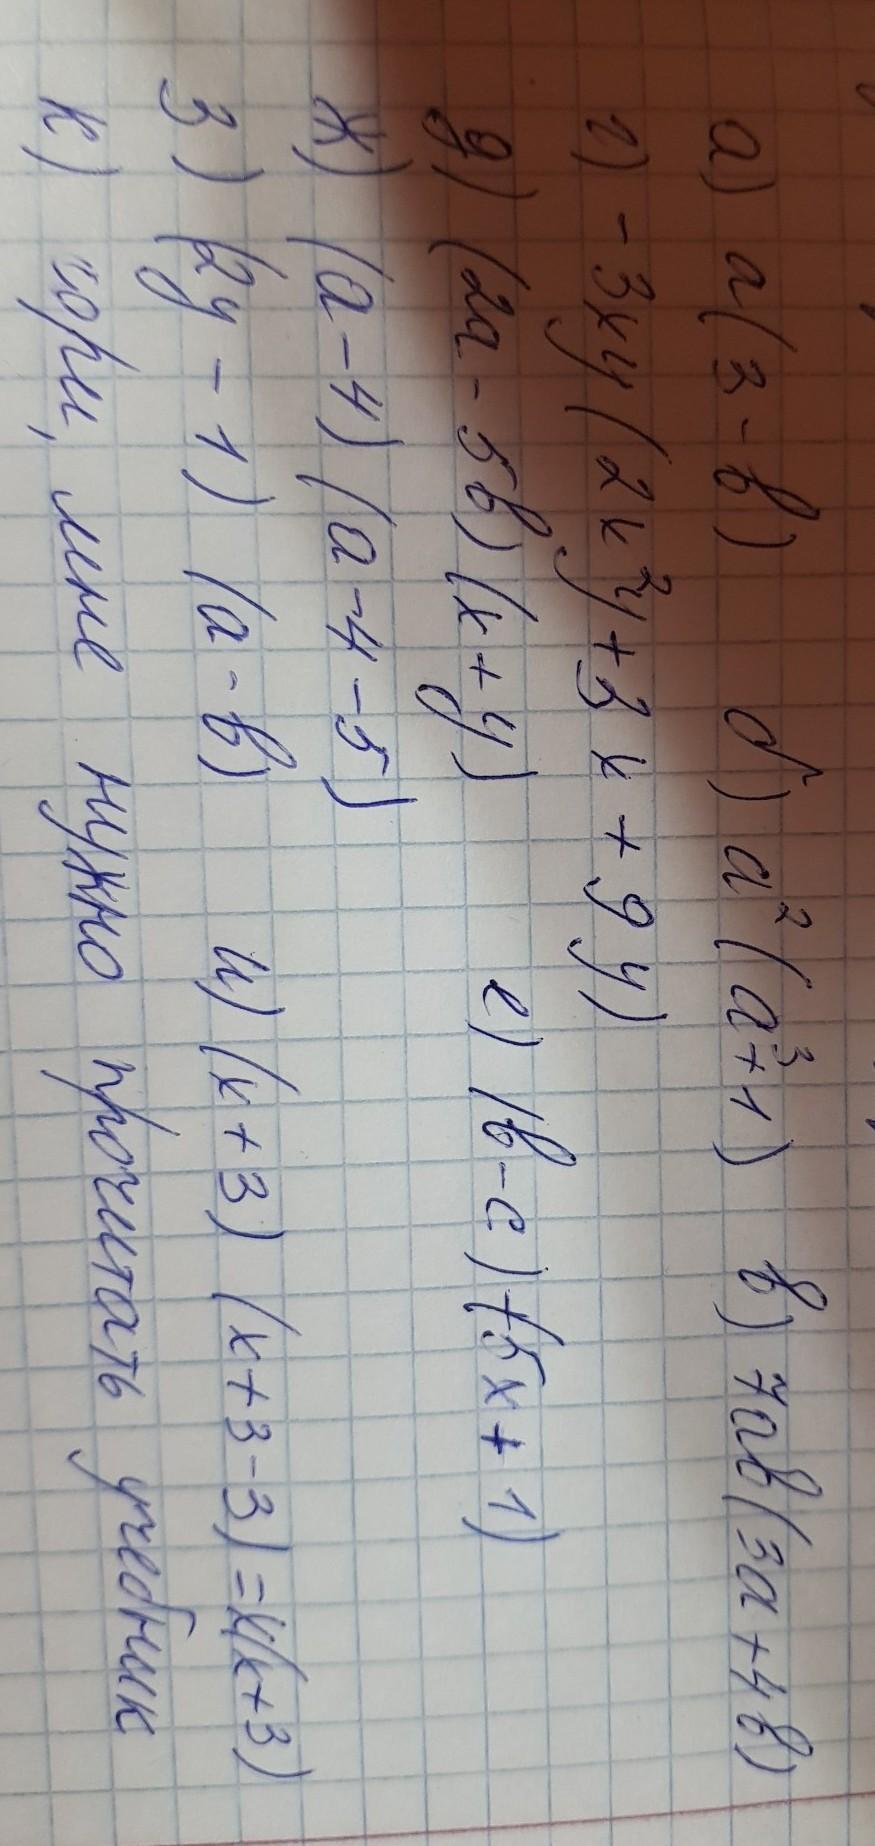 а) a(3-b) б) a²(a³+1) в) 7ab(3a+4b)
г) -3xy(2x²y+3x+9y)
д) (2a-5b)(x+y) е) (b-c)(5x+1)
ж) (a-4)(a-4-5)
з) (2y-1)(a-b) и) (x+3)(x+3-3)=x(x+3)
к) сори, мне нужно прочитать учебник